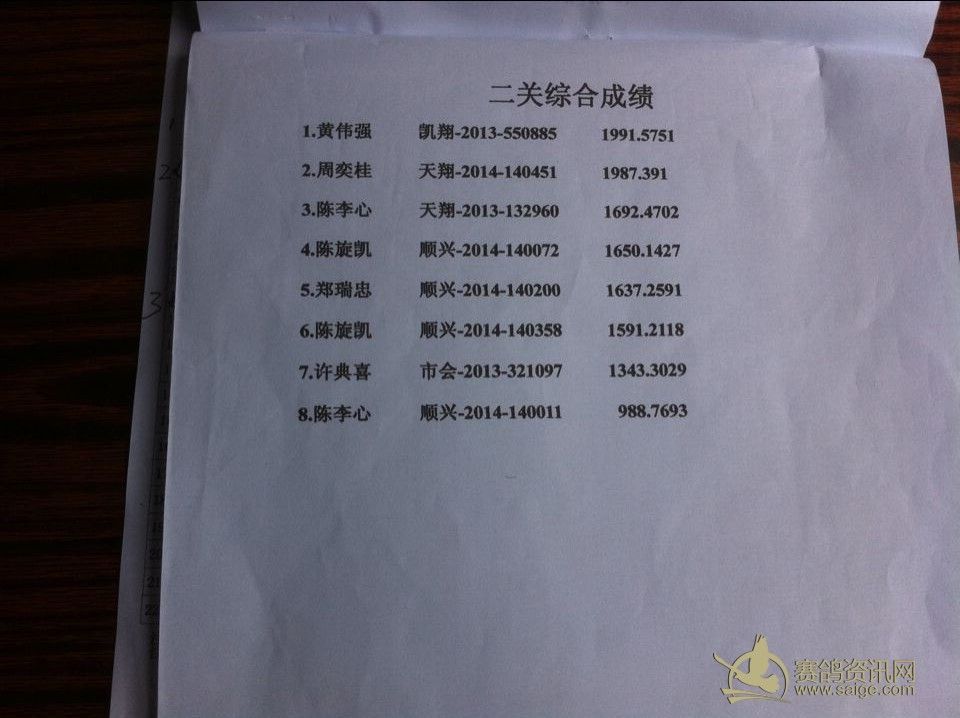 二关综合成绩
1.黄伟强 凯翔-2013-550885 1991.5751
2.周奕桂 天翔-2014-140451 1987.391
3.陈李心 天翔-2013-132960 1692.4702
4.陈旋凯 顺兴-2014-140072 1650.1427
5.郑瑞忠 顺兴-2014-140200 1637.2591
6.陈旋凯 顺兴-2014-140358 1591.2118
7.许典喜 市会-2013-321097 1343.3029
8.陈李心 顺兴-2014-140011 988.7693
20
21
22
赛鸽资讯网
www.saige.com